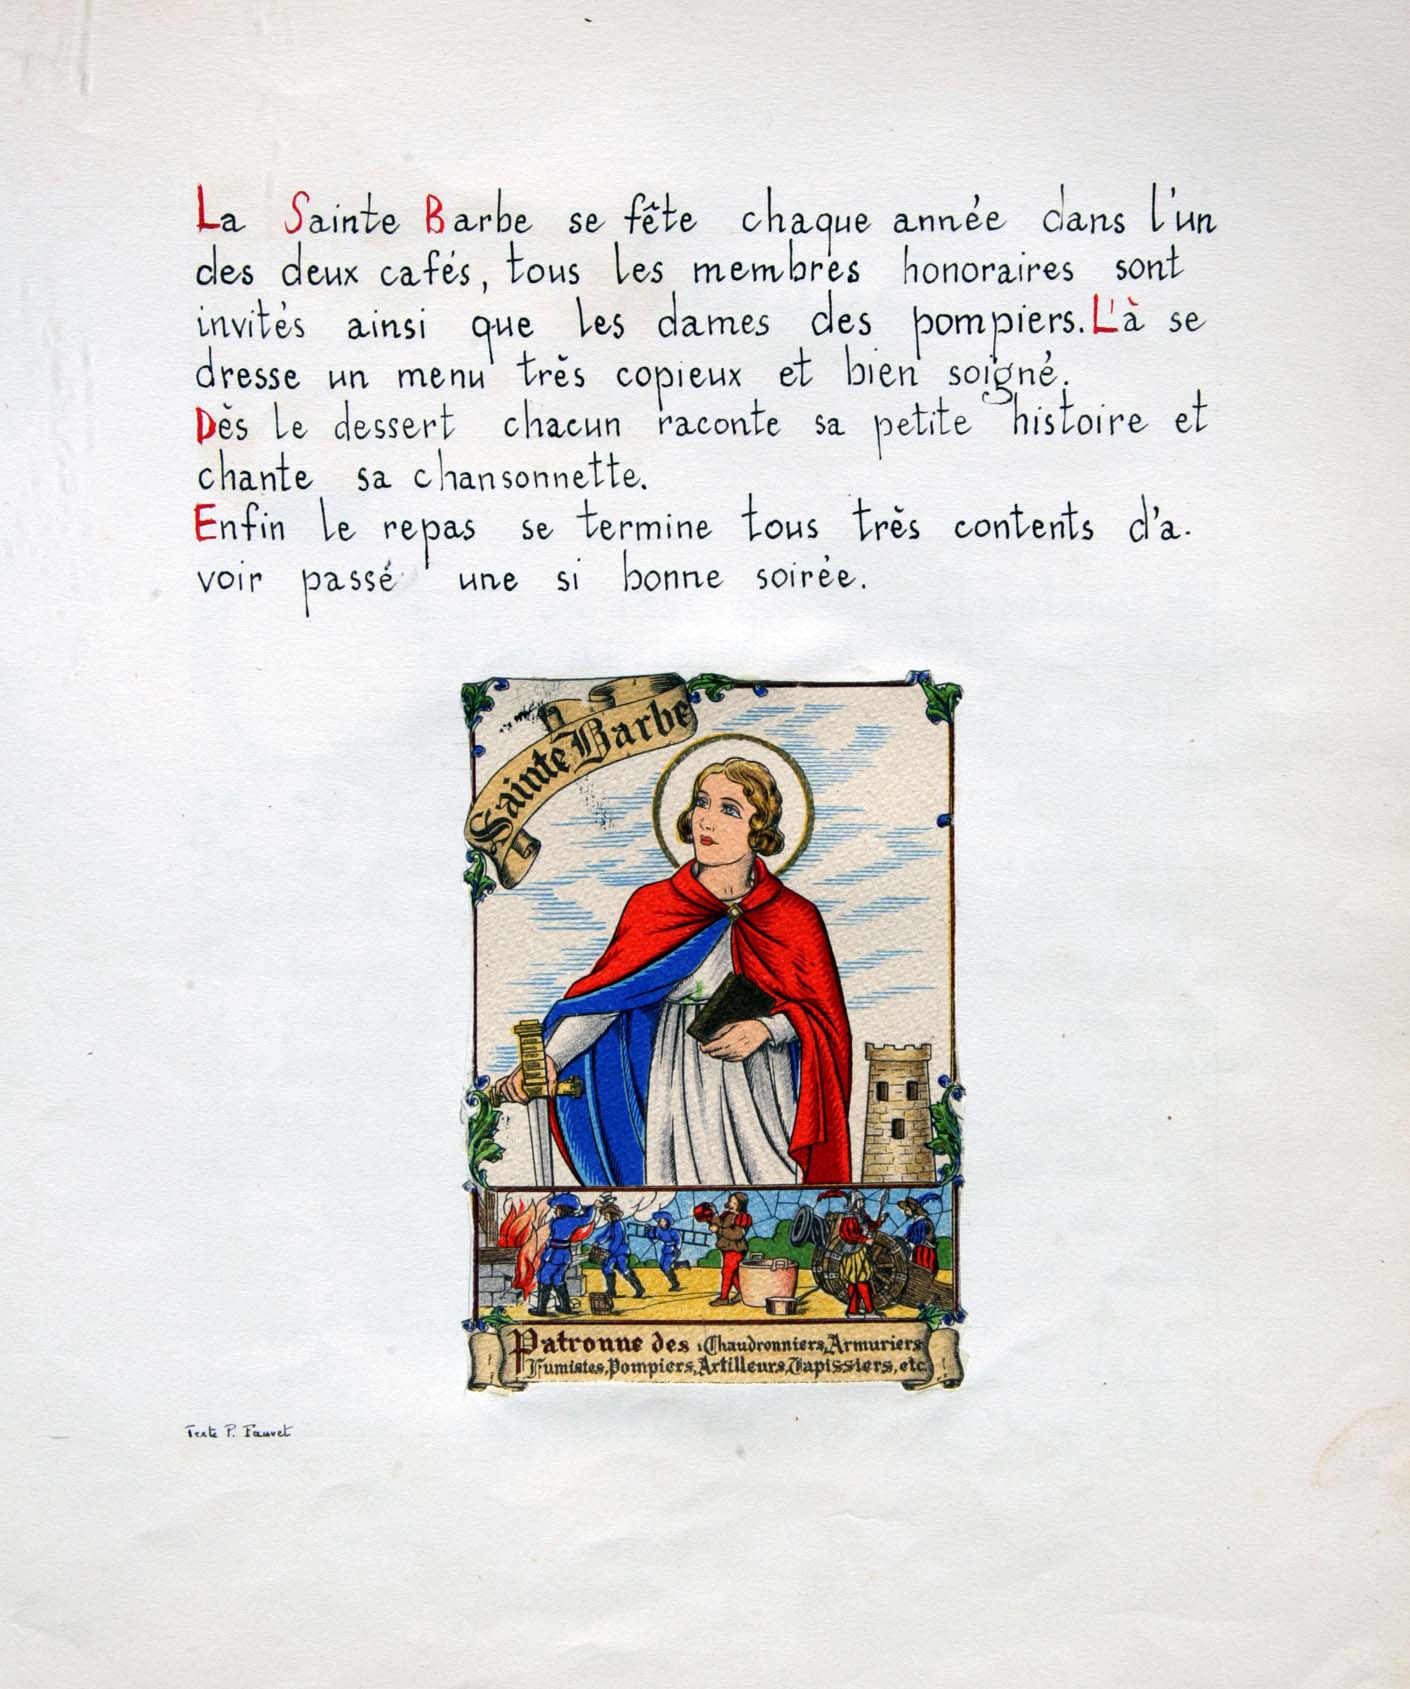 La Sainte Barbe se fête chaque année dans l'un
des deux cafés, tous les membres honoraires sont
invités ainsi que les dames des pompiers. L'à se
dresse un menu très copieux et bien soigné.
Dès le dessert chacun raconte sa petite histoire et
chante sa chansonnette.
Enfin le repas se termine tous très contents d'a-
voir passé une si bonne soirée.
Sainte Barbe
Patronne des : Chaudronniers, Armuriers
Fumistes, Pompiers, Artilleurs, Tapissiers, etc.
Texte P. Fauvet